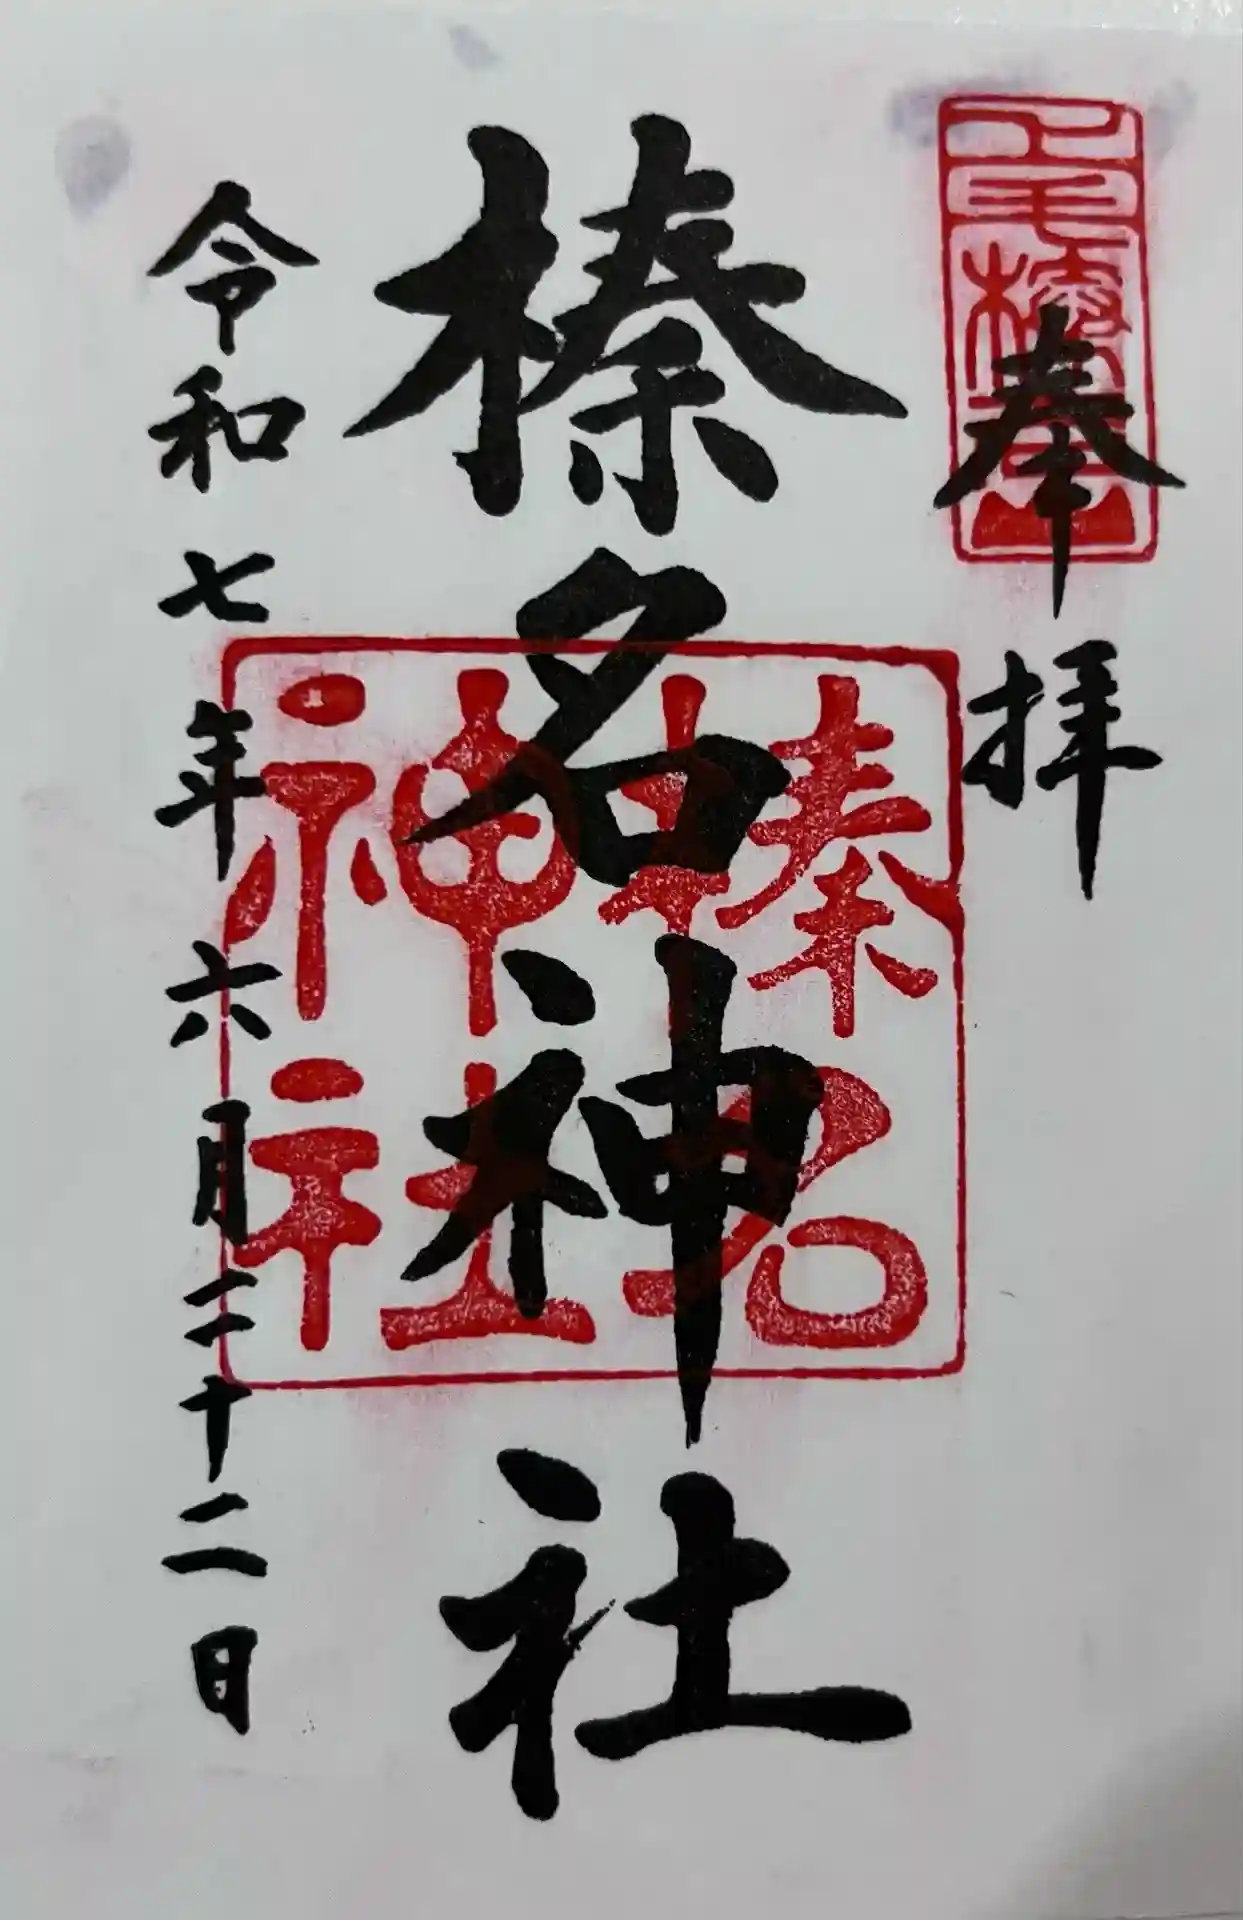 奉拝
榛名神社
榛名
神社
令和七年六月二十二日